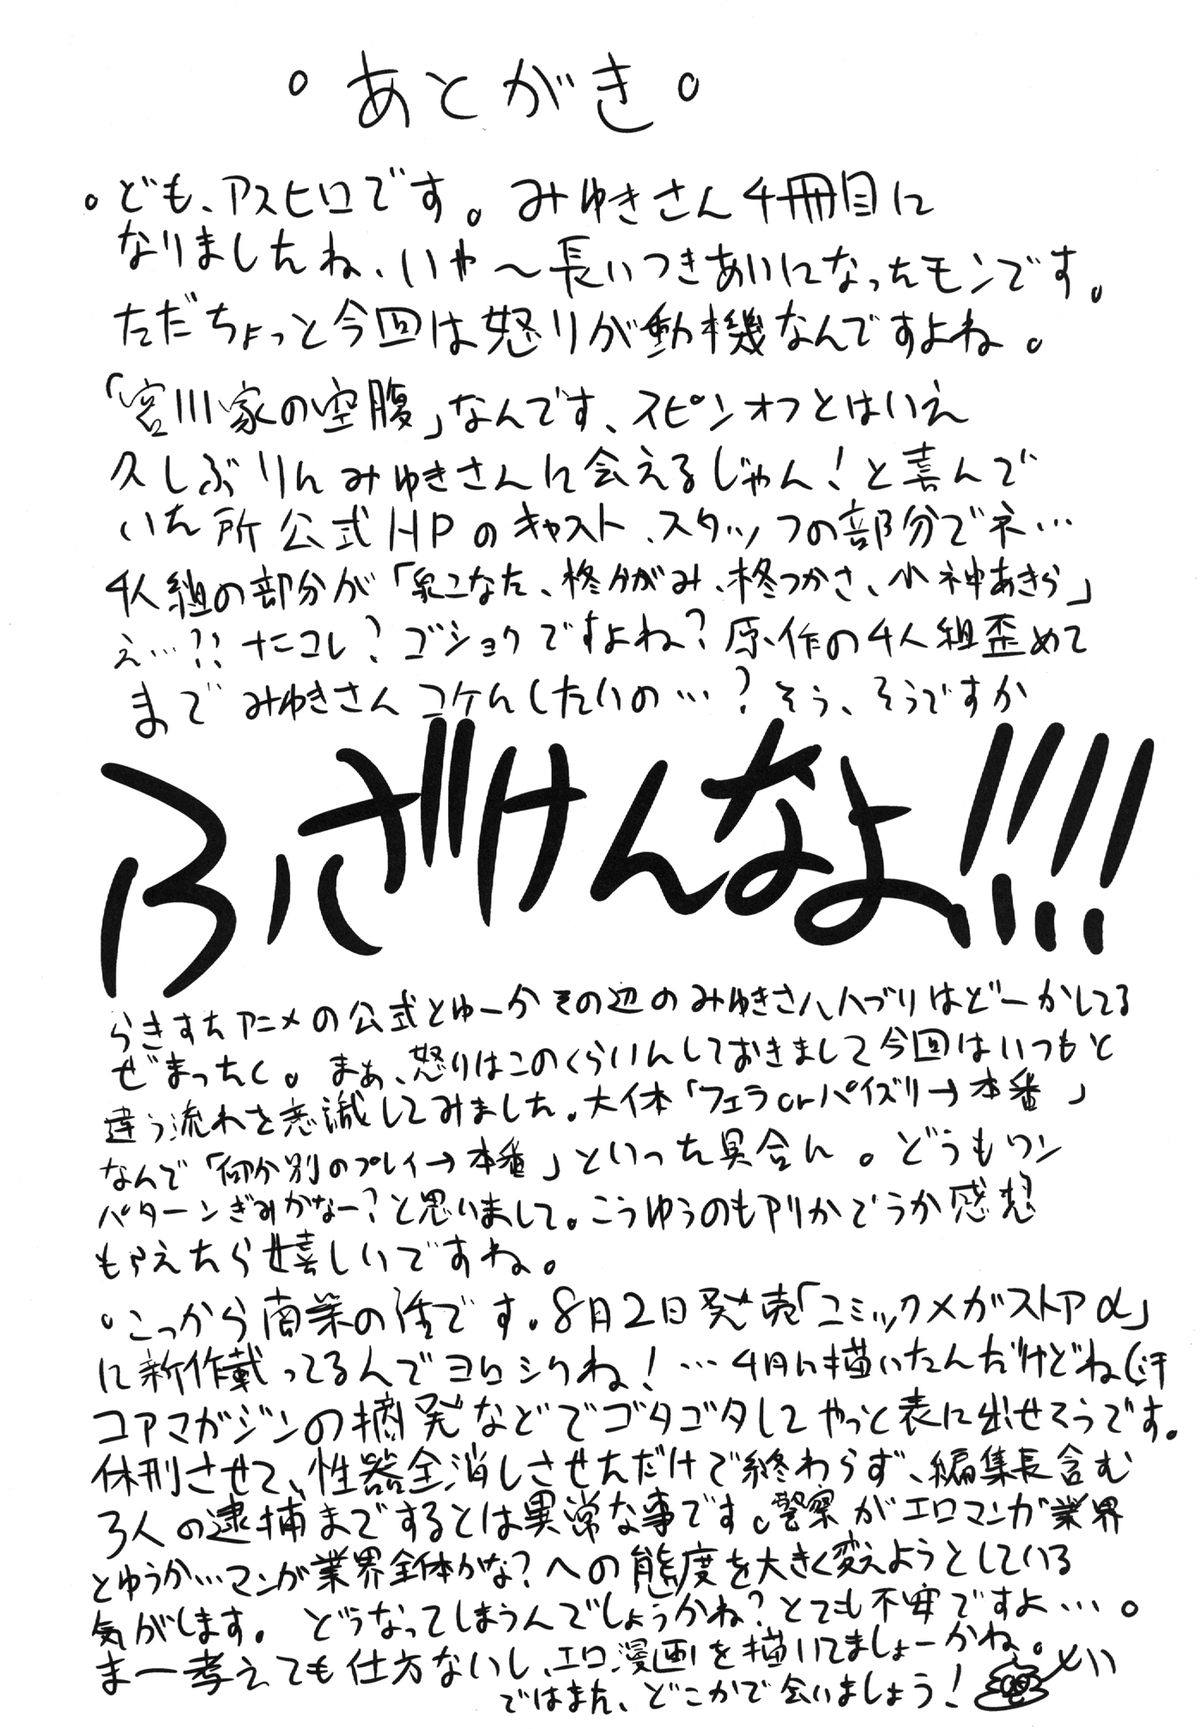 。あとがき。
。ども、アスヒロです。みゆきさん4冊目に
なりましたね、いや〜長いつきあいになったモンです。
ただちょっと今回は怒りが動機なんですよね。
「宮川家の空腹」なんです、スピンオフとはいえ
久しぶりにみゆきさんに会えるじゃん!と喜んで
いた所公式HPのキャスト、スタッフの部分でネ…
4人組の部分が「泉こなた、柊かがみ、柊つかさ、小神あきら」
え…??ナニコレ?ゴショクですよね?原作の4人組歪めて
までみゆきさんコケにしたいの…?そう、そうですか
ふざけんなよ!!!!
らきすたアニメの公式とゆーかその辺のみゆきさんハブリはどーかしてる
ぜまったく。まぁ、怒りはこのくらいにしておきまして今回はいつもと
違う流れを意識してみました。大体「フェラorパイズリ→本番」
なんで「何か別のプレイ→本番」といった具合に。どうもワン
パターンぎみかなー?と思いまして。こうゆうのもアリかどうか感想
もらえたら嬉しいですね。
。こっから商業の話です。8月2日発売「コミックメガストアα」
に新作載ってるんでヨロシクね!…4月に描いたんだけどね(汗
コアマガジンの摘発などでゴタゴタしてやっと表に出せそうです。
休刊させて、性器全消しさせただけで終わらず、編集長含む
3人の逮捕までするとは異常な事です。警察がエロマンガ業界
とゆうか…マンガ業界全体かな?への態度を大きく変えようとしている
気がします。どうなってしまうんでしょうかね?とても不安ですよ…。
まー考えても仕方ないし、エロ漫画を描いてましょーかね。
ではまた、どこかで会いましょう!